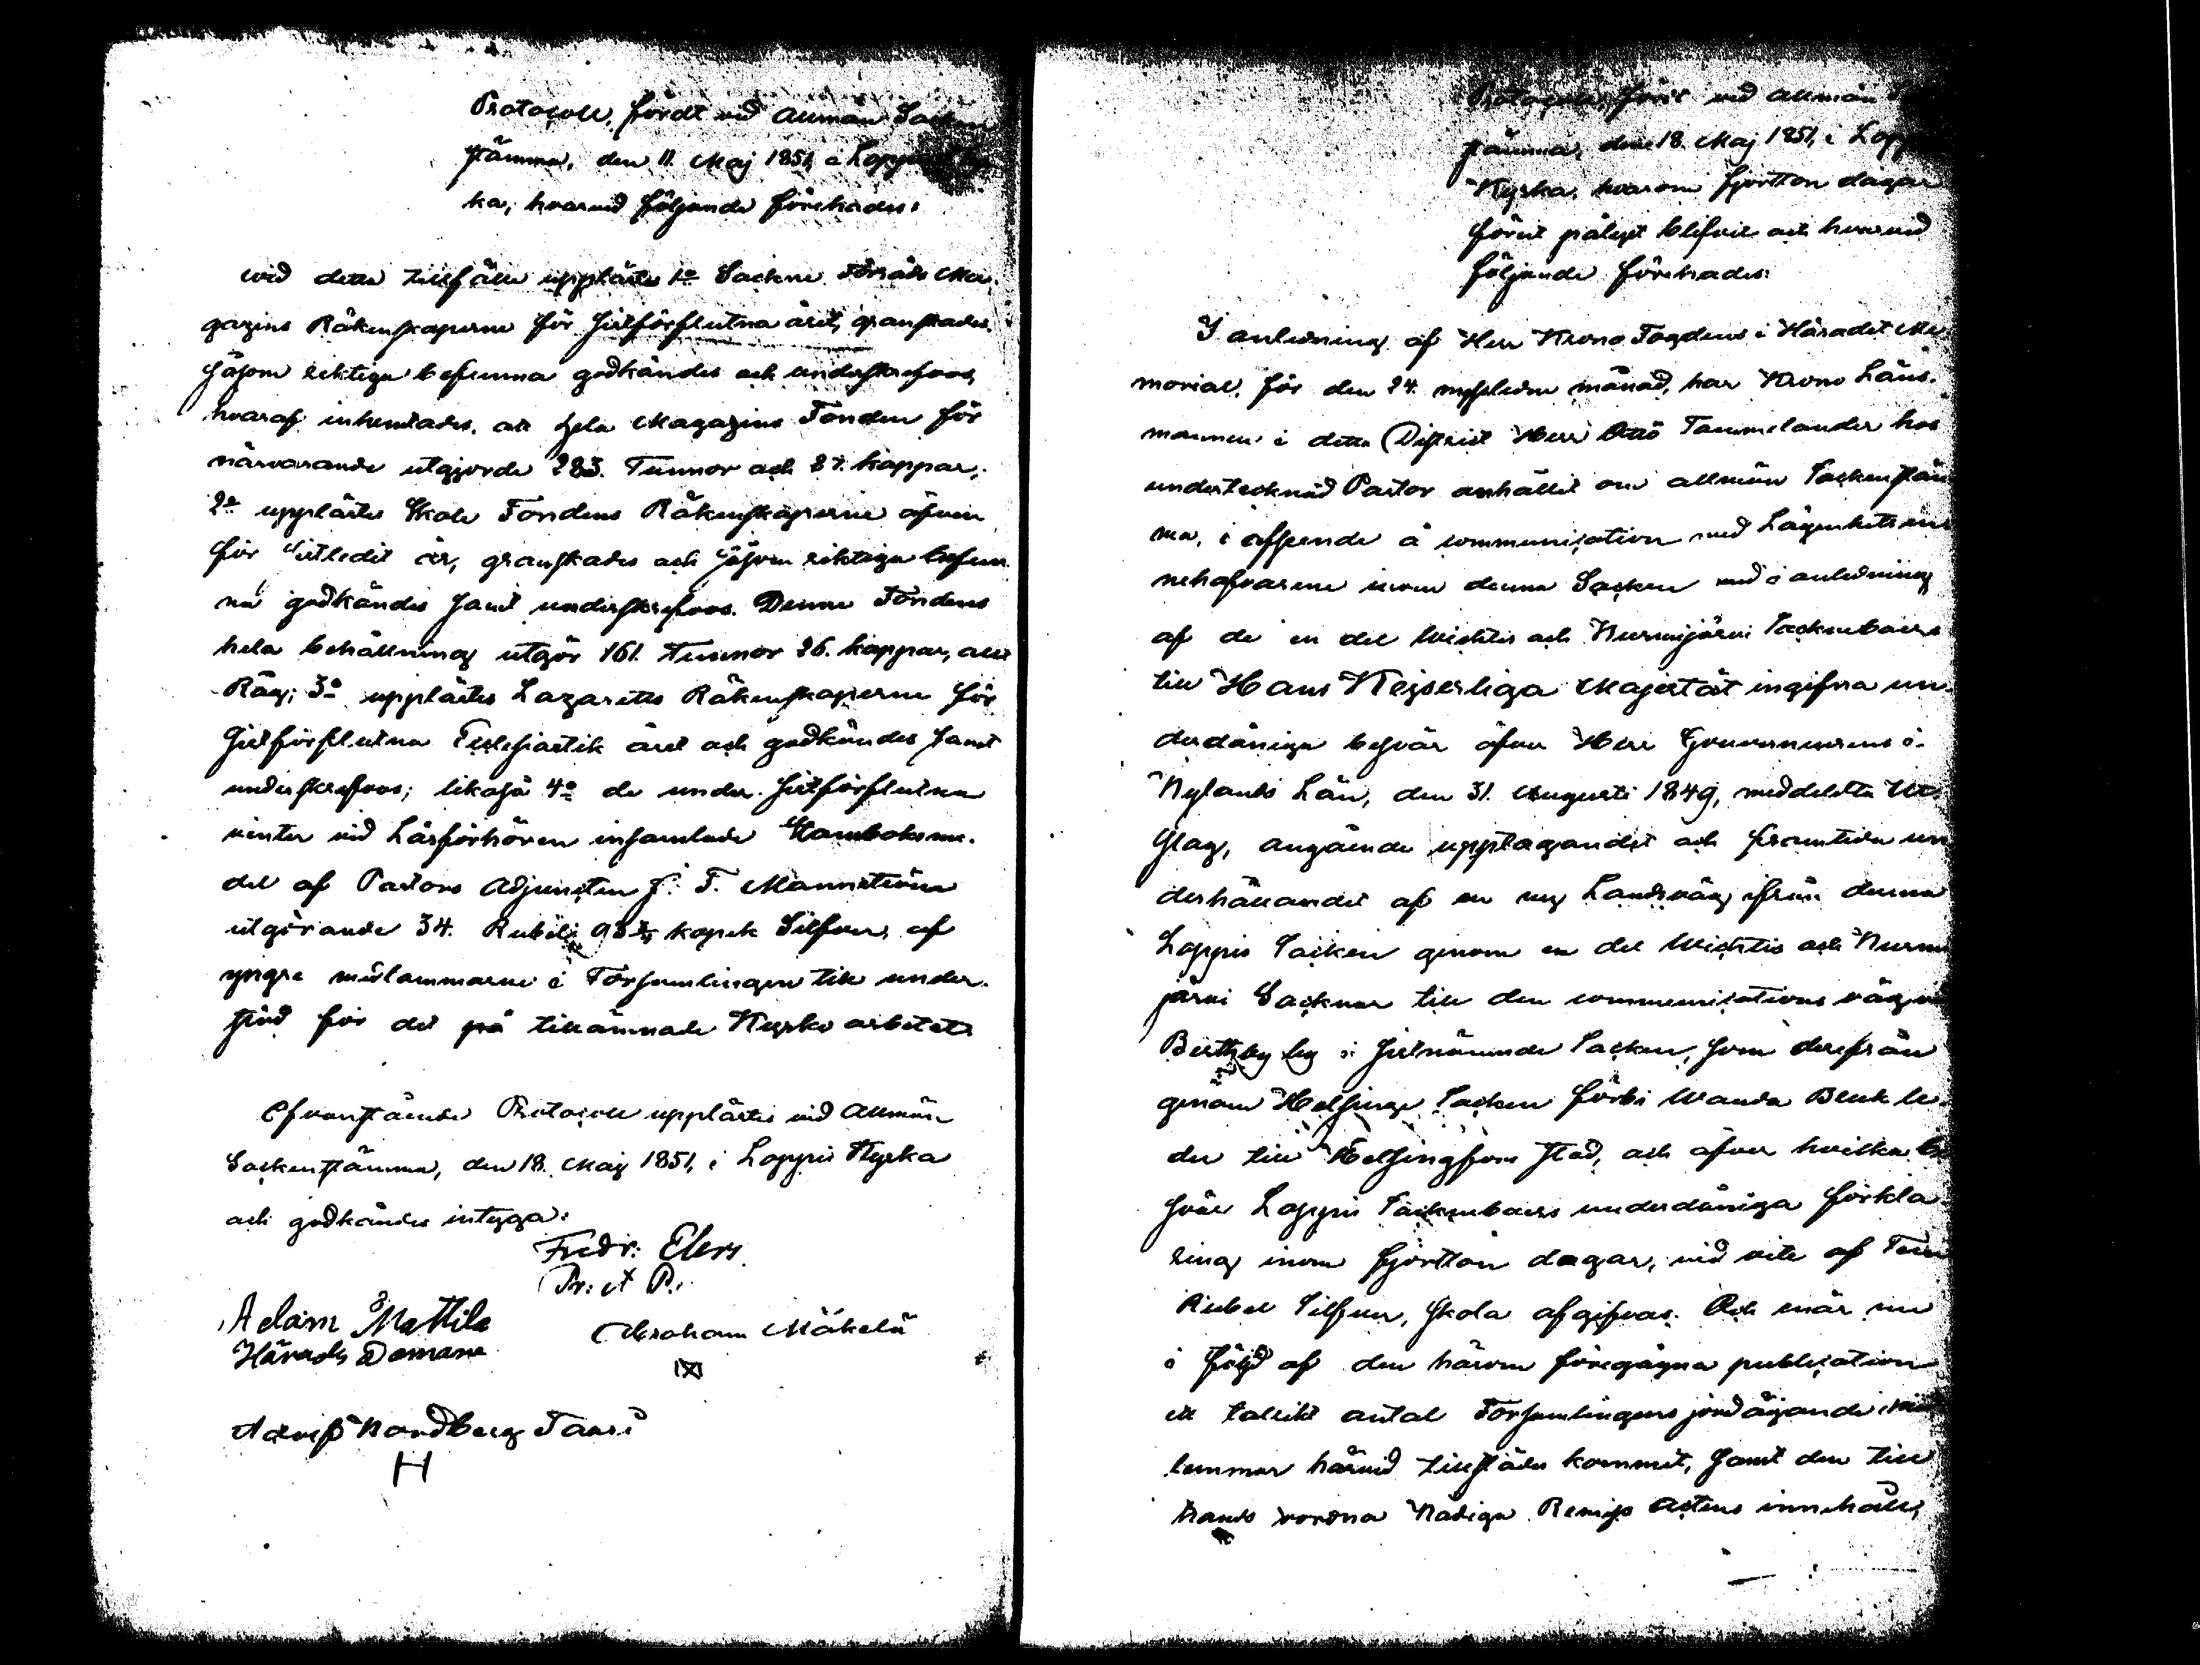 Protocoll, fördt vid Allmän Sockne
stämma, den 11. Maj 1851, i Loppis Kyr
ka, hvarvid följande förehades:
Wid detta tillfälle upplästes 1o Sockne Förråds Ma-
gazins Räkenskaperne för sistförflutna året, granskades,
såsom riktiga befunna godkändes och underskrefvos,
hvaraf inhemtades, att hela Magazins Fonden för
närvarande utgjorde 283. Tunnor och 27. kappar;
2o upplästes Skole Fondens Räkenskaperne äfven
för sistledit år, granskades och såsom riktiga befun
na godkändes samt underskrefvos. Denne Fondens
hela behållning utgör 161. Tunnor 26. kappar, allt
Råg; 3o upplästes Lazaretts Räkenskaperne för
sistförflutna Ecclesiastik året och godkändes samt
underskrefvos; likaså 4o de under sistförflutna
vinter vid Läsförhören insamlade Stamboksme-
del af Pastors Adjuncten J. F. Mannström
utgörande 34. Rubel 93 kopek Silfver, af
yngre medlemmarne i Församlingen till under-
stöd för det på tillämnade Kyrko arbetet.
Ofvanstående Protocoll upplästes vid Allmän
Sockenstämma, den 18. Maj 1851, i Loppis Kyrka
och godkändes intyga:
Fredr: Elers
Pr: et P.
Adam Mattila
Härads Domare
Abraham Mäkelä
Adolf Nordberg Tausi
H
Protocoll, fördt vid Allmän
stämma, den 18. Maj 1851, i Lopp
Kyrka, hvarom fjortton dagar
förut pålyst blifvit och hvarvid
följande förehades:
I anledning af Herr Krono Fogdens i Häradet Me-
morial, för den 24. nystledne månad, har Krono Läns-
mannen i detta District Herr Otto Tammelander hos
undertecknad Pastor anhållit om allmän Sockenstäm
ma, i afseende å communication med Lägenhets in
nehafvarene inom denna Socken med i anledning
af de en del Wichtis och Nurmijärvi Sockneboers
till Hans Kejserliga Majestät ingifna un-
derdåniga besvär öfver Herr Gouverneurens i
Nylands Län, den 31. Augusti 1849, meddelta Ut-
slag, angående upptagandet och framtida un
derhållandet af en ny Landsväg ifrån denna
Loppis Socken genom en del Wichtis och Nurmi
järvi Socknar till den communications vägen
by i sistnämnde Socken, som derifrån
genom Helsinge Socken förbi Wanda Bruk le-
der till Helsingfors stad, och öfver hvilka be
svär Loppis Sockneboers underdåniga förkla
ring inom fjortton dagar, vid vite af Fem
Rubel Silfver, skola afgifvas. Och när nu
i följd af den härom föregågna publication
ett talrikt antal Församlingens jordägande med
lemmar härvid tillstädes kommit, samt den till
hands vordna Nådiga Remiss Actens innehåll,